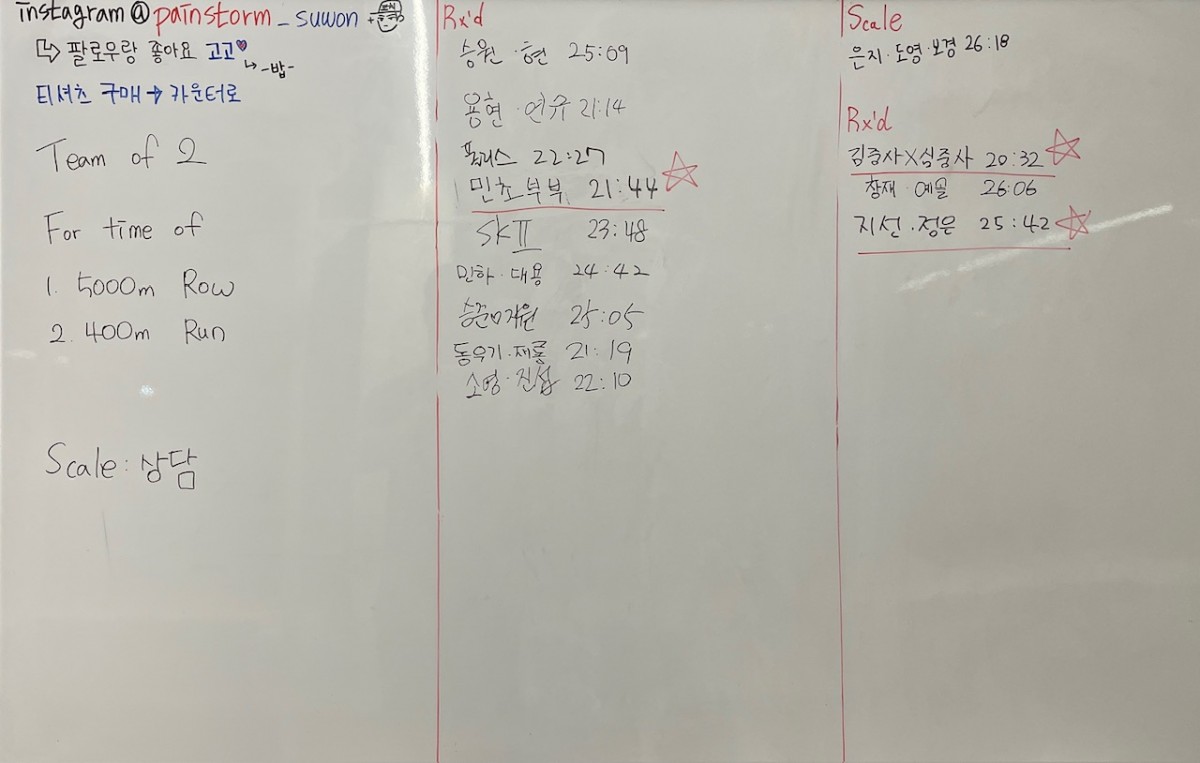 instagram@painstorm_suwon
팔로우랑 좋아요 고고♥
-밥-
티셔츠 구매→카운터로
Team of 2
For time of
1. 5000m Row
2. 400m Run
Scale: 상담
Rx'd
승원·현 25:09
용현·연유 21:14
22:27
민초부부 21:44
SKⅡ 23:48
민하·대용 24:42
25:05
동우기·재룡 21:19
소영·진섭 22:10
Scale
은지·도영·보경 26:18
Rx'd
김중사X심중사 20:32
창재·예솔 26:06
지선·정은 25:42